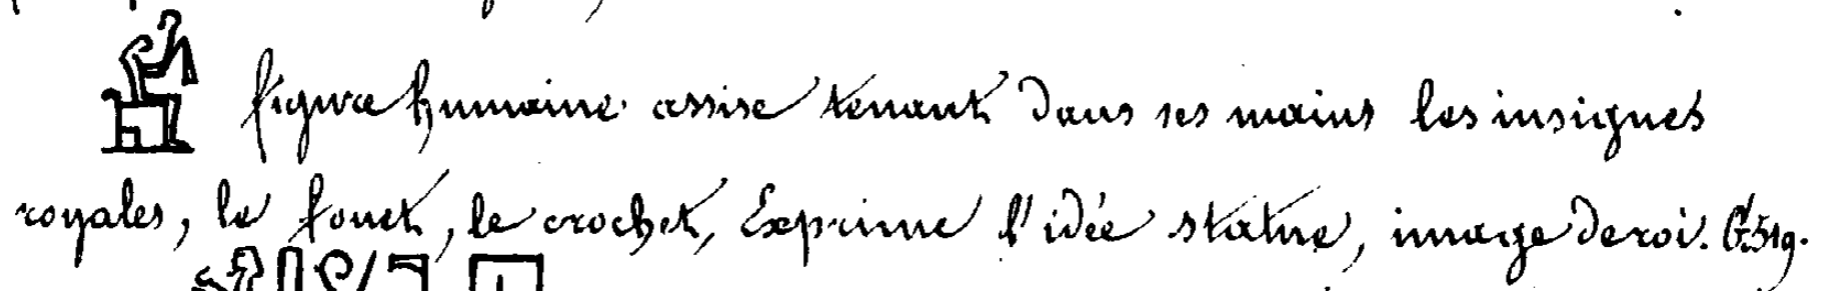 figure humaine assise tenant dans ses mains les insignes
royales, le fouet, le crochet, Exprime l'idée statue, image de roi. Gr. 519.